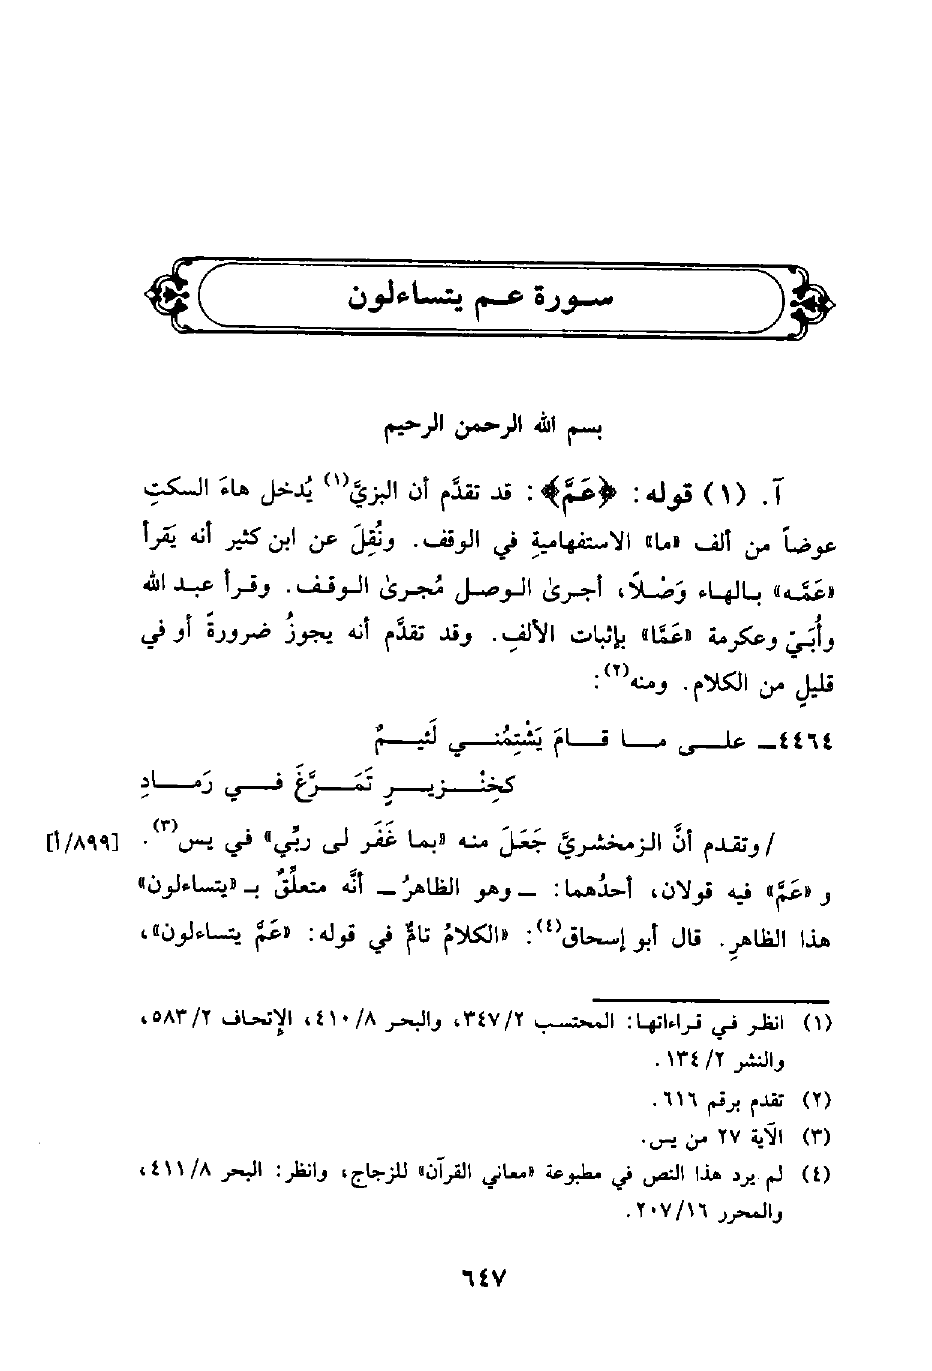 سورة عم يتساءلون
بسم الله الرحمن الرحيم
آ. (١) قوله: ﴿عَمَّ﴾: قد تقدَّم أن البزيَّ(١) يُدخل هاءَ السكتِ
عوضاً من ألف «ما» الاستفهاميةِ في الوقف. ونُقِلَ عن ابن كثير أنه يَقرأ
«عَمَّه» بالهاء وَصْلاً، أجرىٰ الوصل مُجرىٰ الوقف. وقرأ عبد الله
وأُبَيّ وعكرمة «عَمَّا» بإثبات الألفِ. وقد تقدَّم أنه يجوزُ ضرورةً أو في
قليلٍ من الكلام. ومنه(٢):
٤٤٦٤ـ على ما قامَ يَشْتِمُني لَئيمٌ
كخِنْزيرٍ تَمَرَّغَ في رَمادِ
/ وتقدم أنَّ الزمخشريَّ جَعَلَ منه «بما غَفَر لى ربِّي» في يس(٣). [٨٩٩/أ]
و «عَمَّ» فيه قولان، أحدُهما: ـ وهو الظاهرُ ـ أنَّه متعلِّقٌ بـ «يتساءلون»
هذا الظاهرِ. قال أبو إسحاق(٤): «الكلامُ تامٌّ في قوله: «عَمَّ يتساءلون»،
(١) انظر في قراءاتها: المحتسب ٣٤٧/٢، والبحر ٤١٠/٨، الإتحاف ٥٨٣/٢،
والنشر ١٣٤/٢.
(٢) تقدم برقم ٦١٦.
(٣) الآية ٢٧ من يس.
(٤) لم يرد هذا النص في مطبوعة «معاني القرآن» للزجاج، وانظر: البحر ٤١١/٨،
والمحرر ٢٠٧/١٦.
٦٤٧